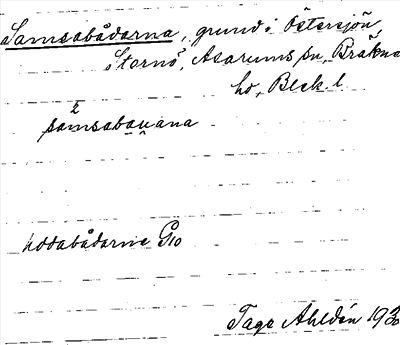 Samsabådarna, grund i Östersjön,
Sternö, Asarums sn, Bräkne
hd, Blek. l.
2
samsabau̯ana
hotabådarne G10
Tage Ahldén 1930